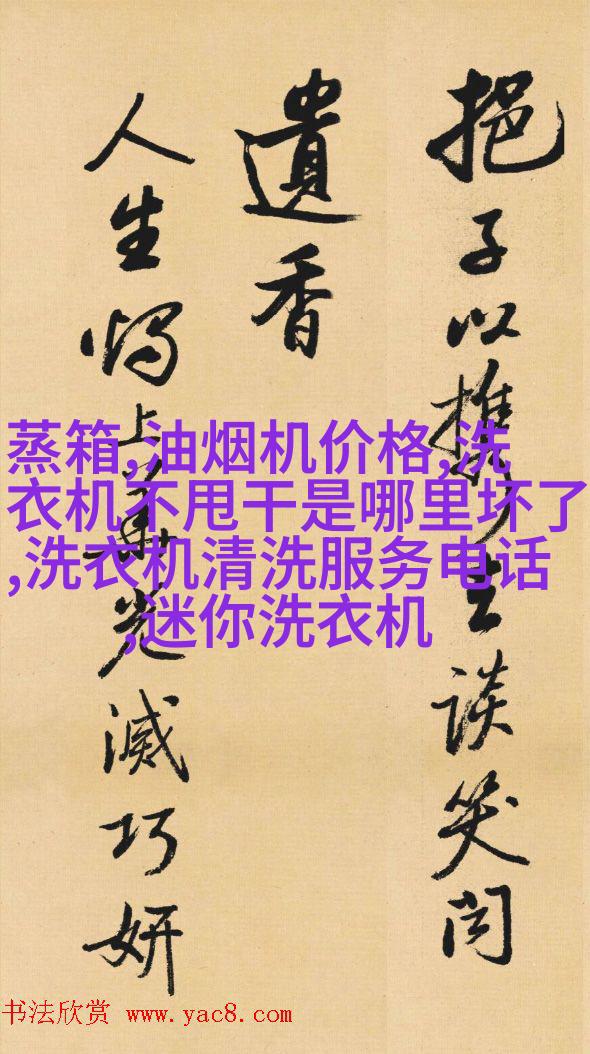 挹子以携士談笑間
遺香
人生燭上華光滅巧妍
蒸箱,油烟机价格,洗
衣机不甩干是哪里坏了
,洗衣机清洗服务电话
,迷你洗衣机
书法欣赏 www.yac8.com